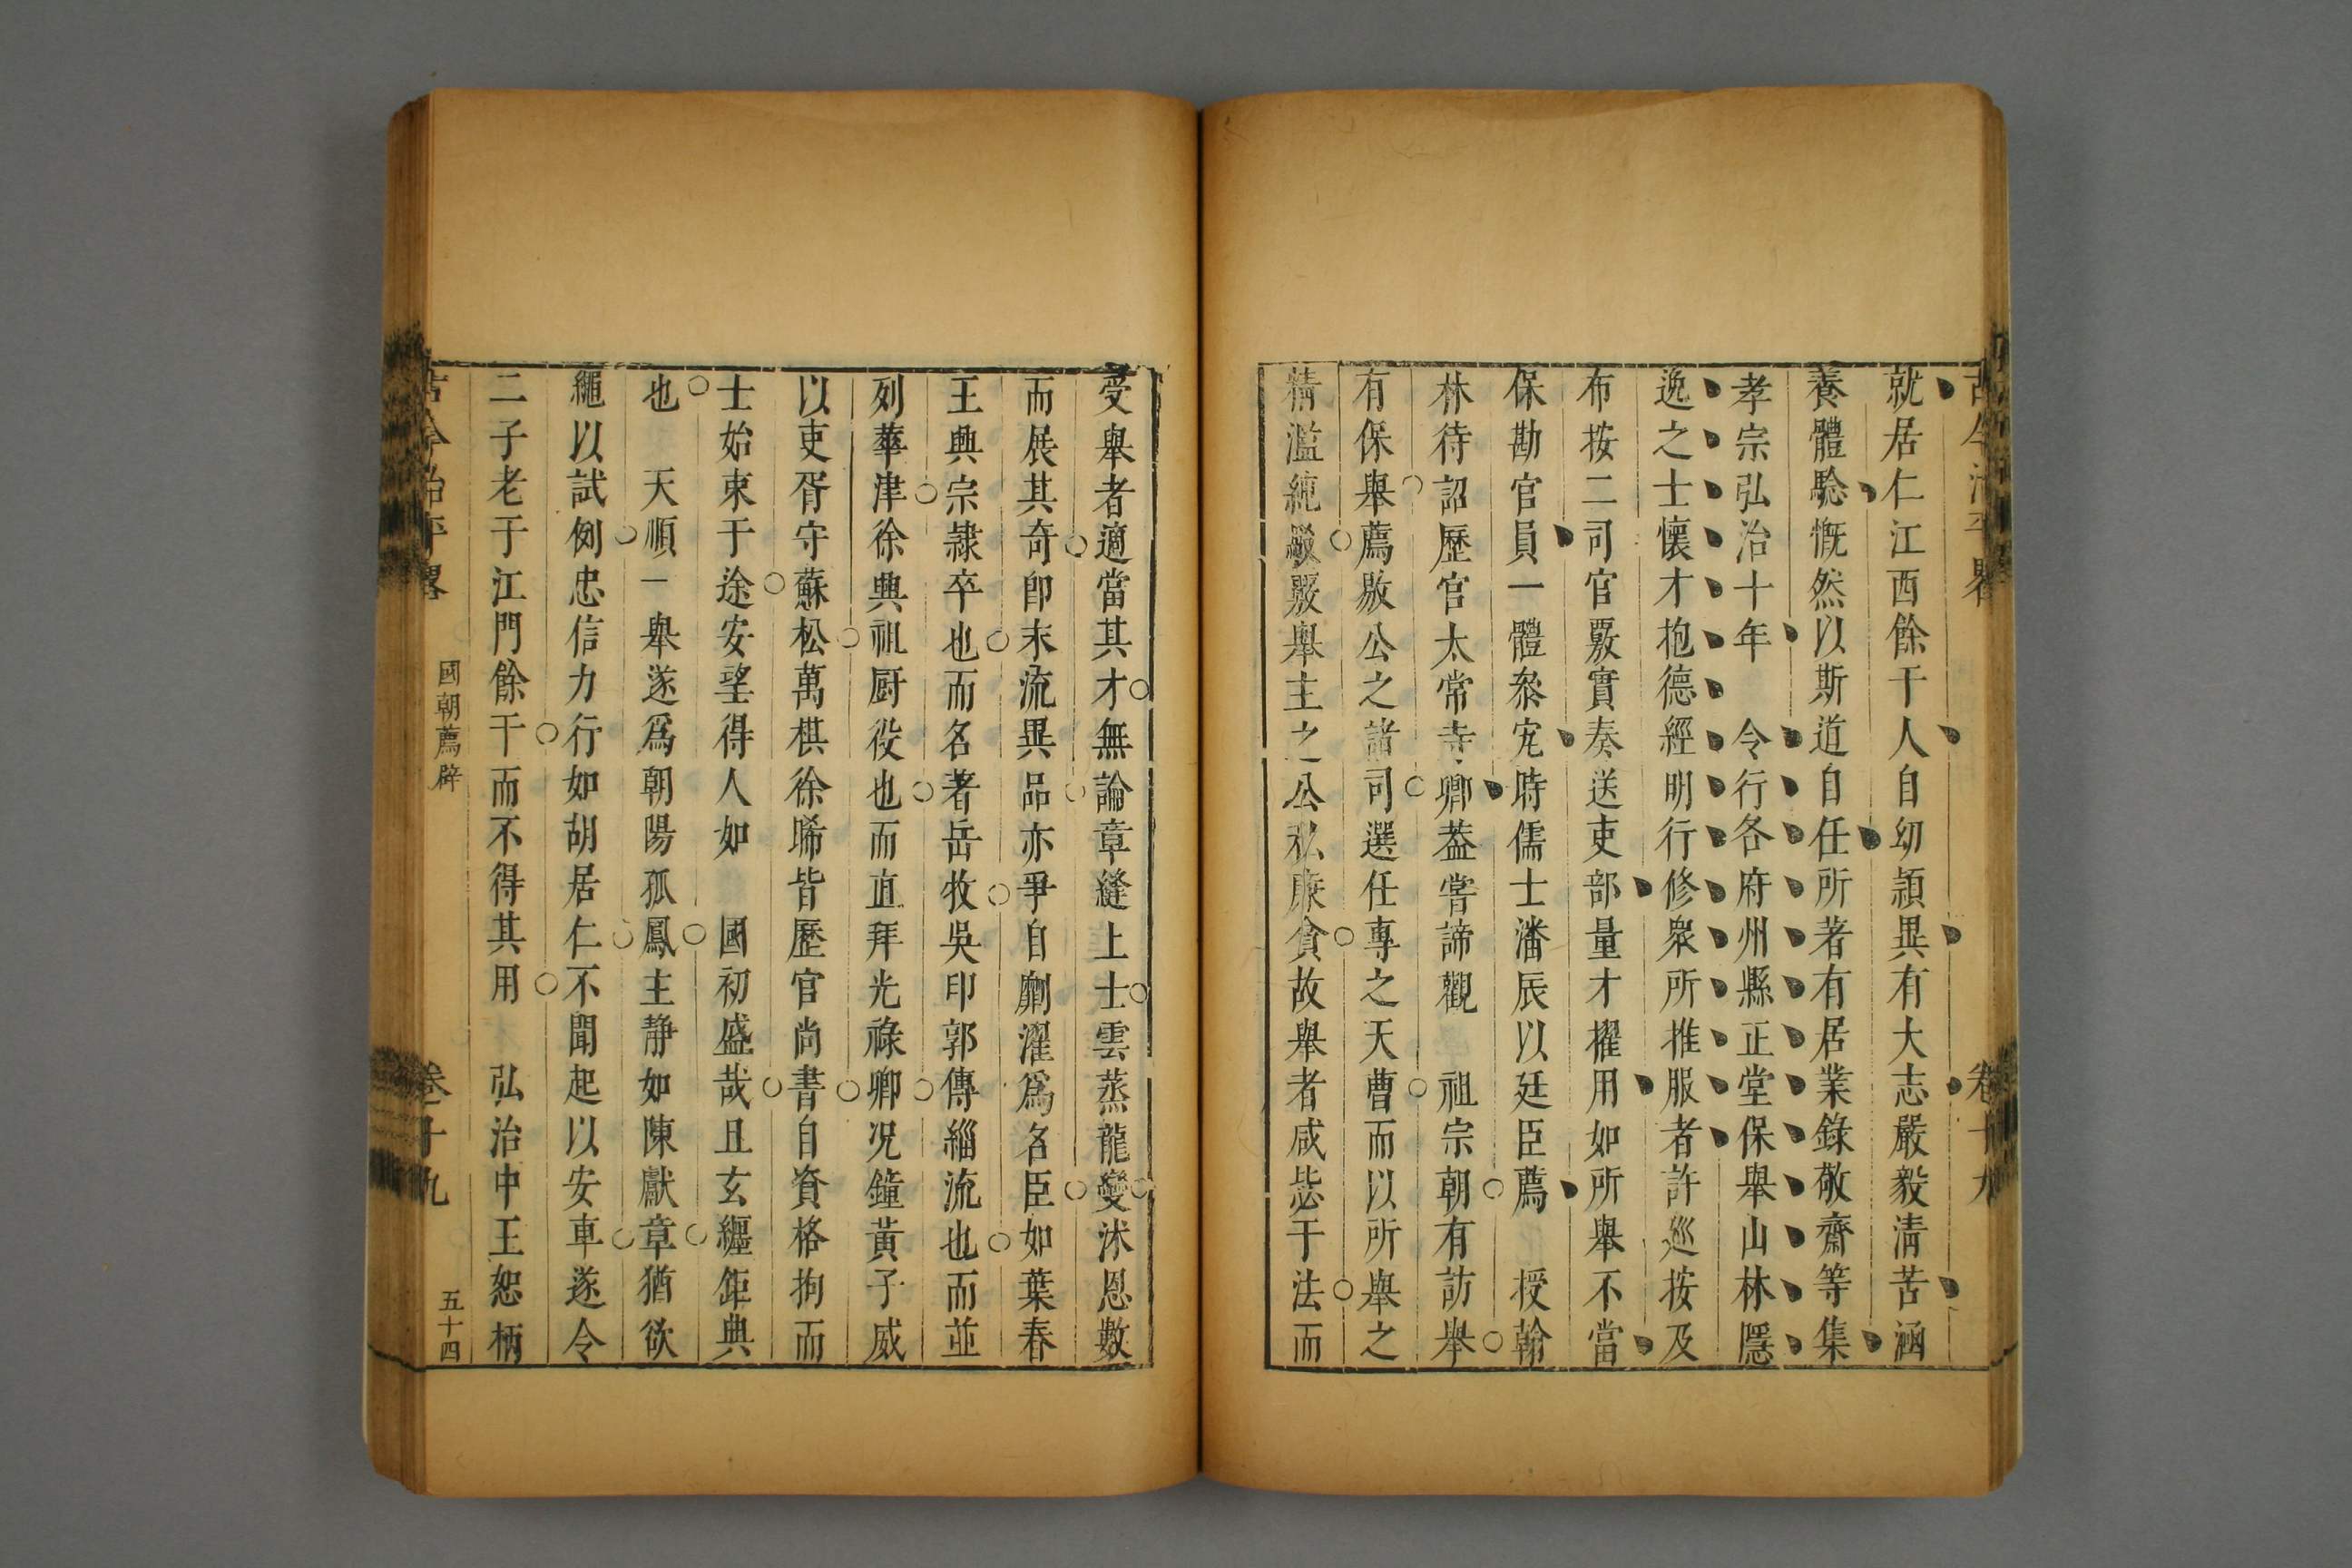 古今治平畧
卷十九
就居仁江西餘干人自幼頴異有大志嚴毅清苦涵
養體驗慨然以斯道自任所著有居業錄敬齋等集
孝宗弘治十年 令行各府州縣正堂保舉山林隱
逸之士懷才抱德經明行修衆所推服者許巡按及
布按二司官覈實奏送吏部量才擢用如所舉不當
保勘官員一體叅究時儒士潘辰以廷臣薦 授翰
林待詔歷官太常寺卿葢嘗諦觀 祖宗朝有訪舉
有保舉薦敭公之諸司選任專之天曹而以所舉之
精濫純駁覈舉主之公私廉貪故舉者咸毖于法而
受舉者適當其才無論章縫上士雲蒸龍變沐恩數
而展其奇卽末流異品亦爭自劘濯爲名臣如葉春
王興宗隸卒也而名著岳牧吳印郭傳緇流也而並
列華津徐興祖厨役也而直拜光祿卿况鐘黃子威
以吏胥守蘇松萬棋徐晞皆歷官尚書自資格拘而
士始束于途安望得人如 國初盛哉且玄纁鉅典
也 天順一舉遂爲朝陽孤鳳主靜如陳獻章猶欲
繩以試例忠信力行如胡居仁不聞起以安車遂令
二子老于江門餘干而不得其用 弘治中王恕柄
古今治平畧
國朝薦辟
卷十九
五十四